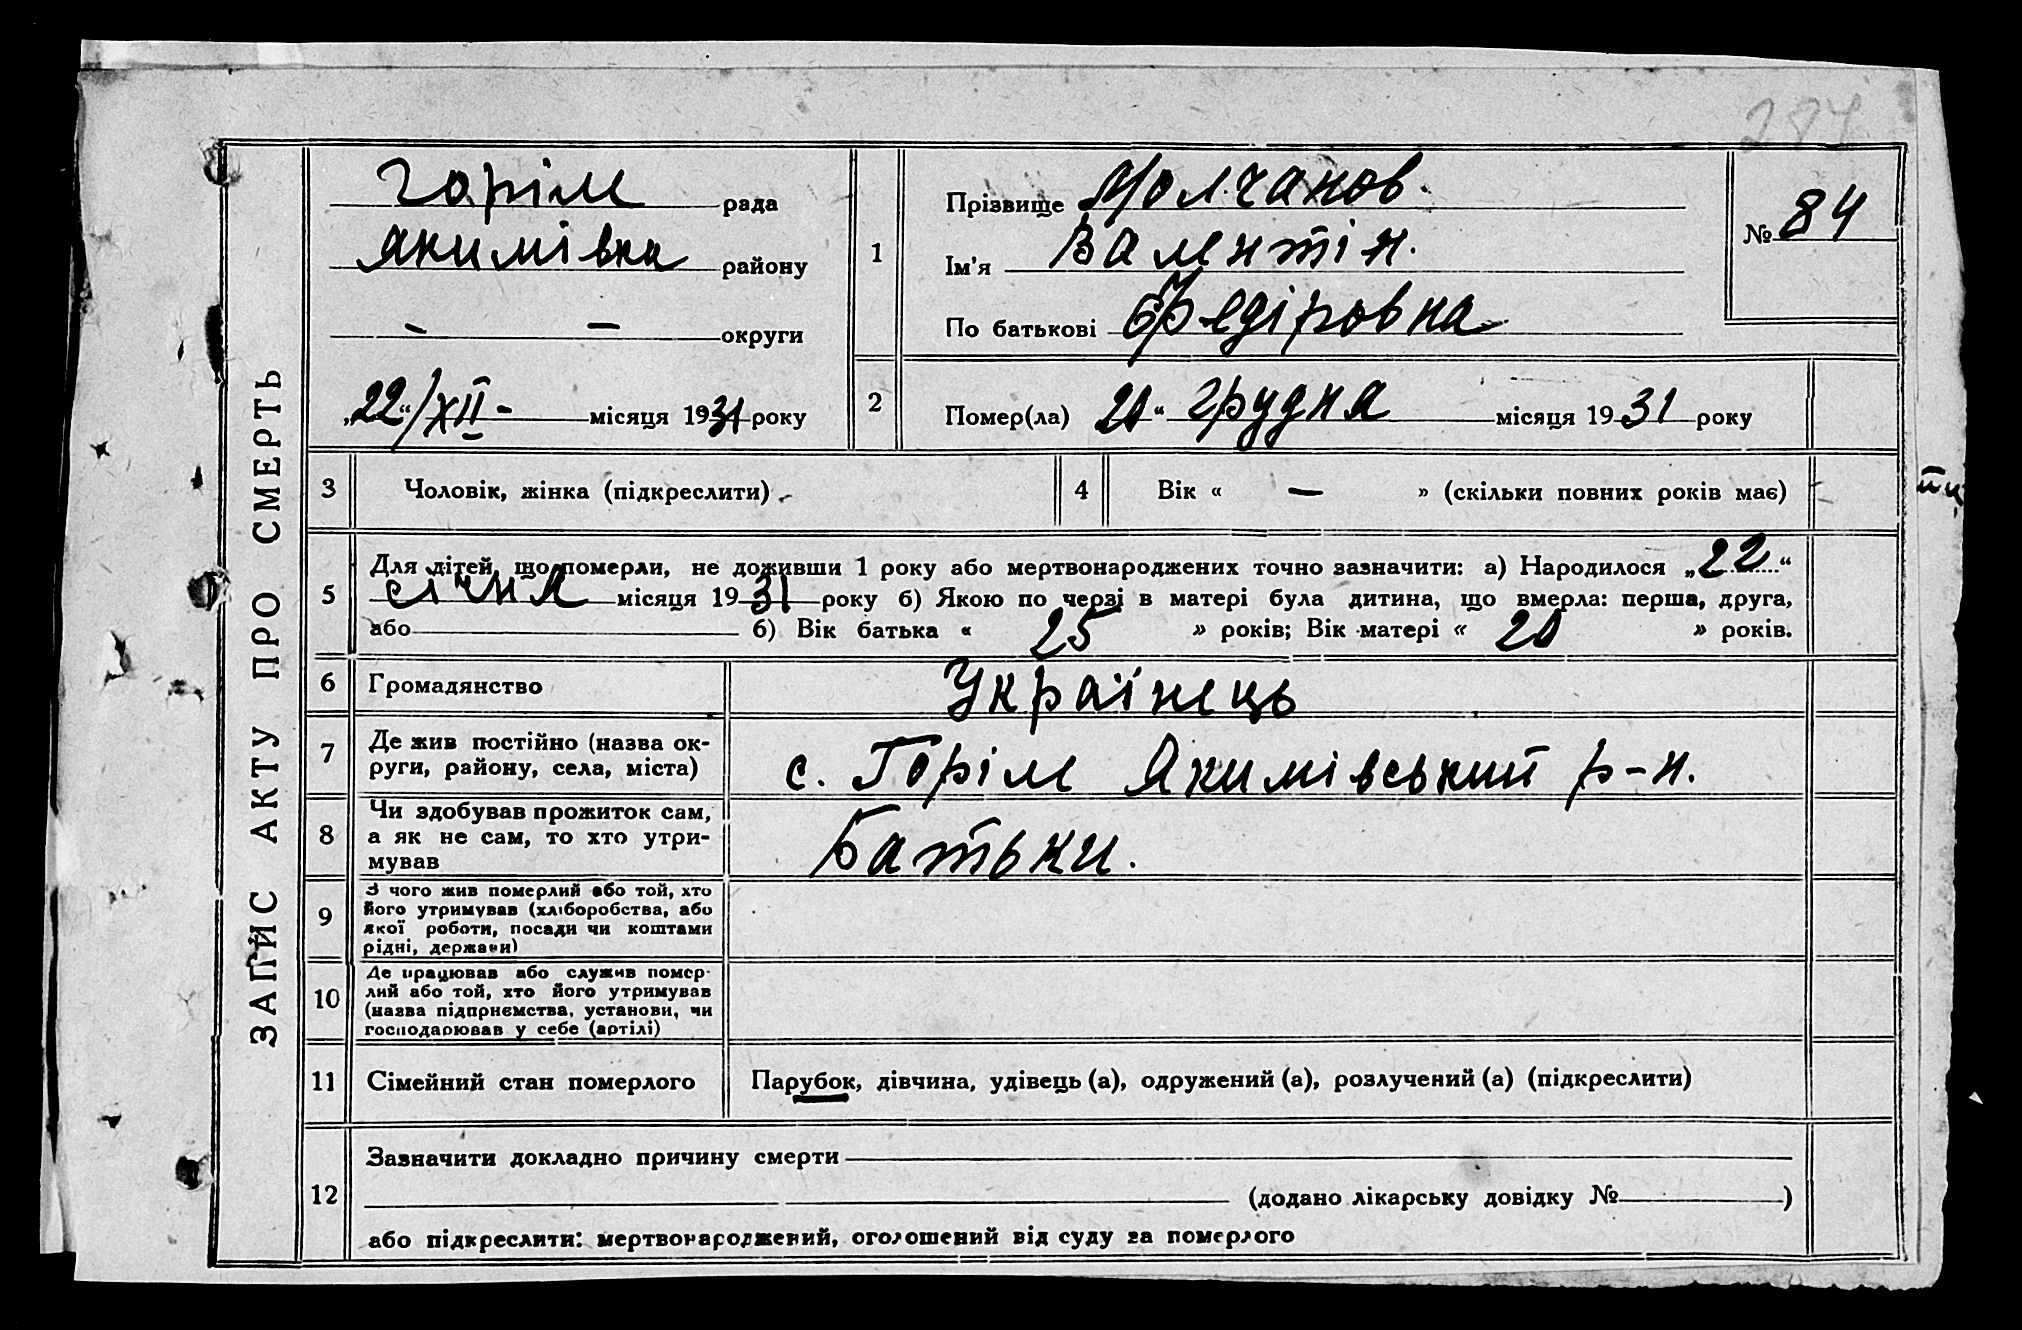 284
ЗАПИС АКТУ ПРО СМЕРТЬ
Горіл рада
Якимівка району
– – округи
„22“/XII - місяця 1931 року
1
Прізвище Молчанов.
Ім'я Валентін.
По батькові Федіровна
№ 84
2
Помер(ла) 20 “ грудня місяця 1931 року
3 Чоловік, жінка (підкреслити)
4 Вік « — » (скільки повних років має)
5 Для дітей, що померли, не доживши 1 року або мертвонароджених точно зазначити: а) Народилося „22“
січня місяця 1931 року б) Якою по черзі в матері була дитина, що вмерла: перша, друга,
або б) Вік батька « 25 » років; Вік матері « 20 » років.
6 Громадянство Українець
7 Де жив постійно (назва ок-
руги, району, села, міста) с. Горіл Якимівський р-н.
8 Чи здобував прожиток сам,
а як не сам, то хто утри-
мував Батьки.
9 З чого жив померлий або той, хто
його утримував (хліборобства, або
якої роботи, посади чи коштами
рідні, держави)
10 Де працював або служив помер-
лий або той, хто його утримував
(назва підприємства, установи, чи
господарював у себе (артілі)
11 Сімейний стан померлого Парубок, дівчина, удівець (а), одружений (а), розлучений (а) (підкреслити)
12 Зазначити докладно причину смерти
(додано лікарську довідку № )
або підкреслити: мертвонароджений, оголошений від суду за померлого